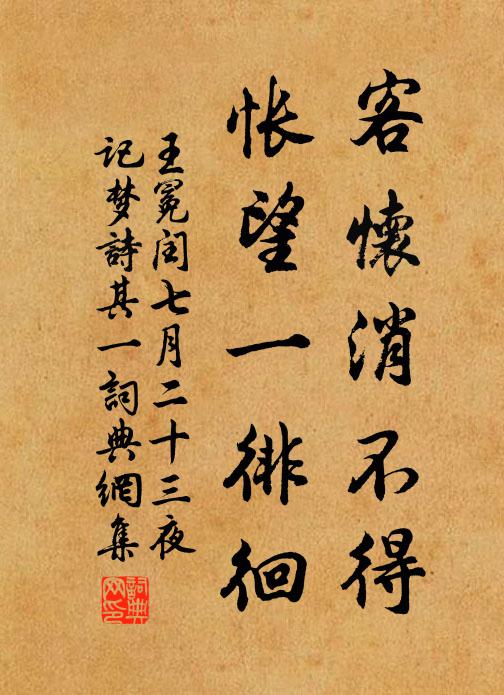 客懷消不得
悵望一徘徊
王冕閏七月二十三夜
記梦詩其一詞典網集
詞典
网印